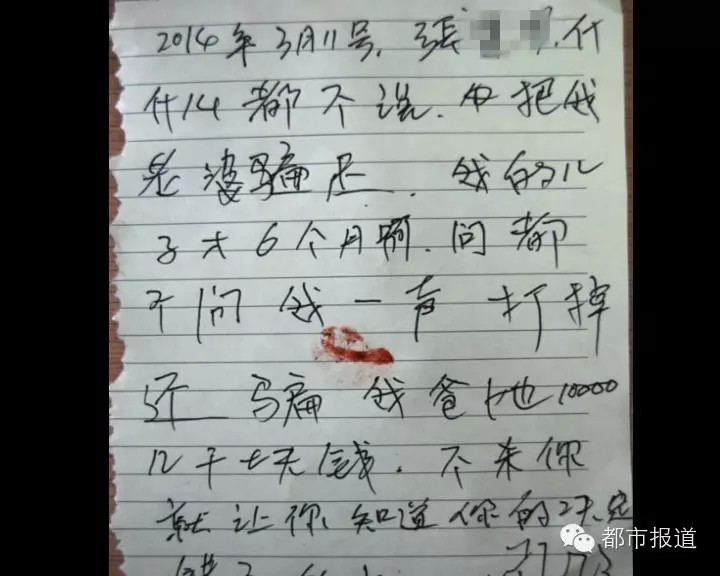 2014年3月11号,张 什
什么都不说.中把我
老婆骗走.我的儿
子才6个月啊.问都
不问我一声 打掉
还骗我爸 他10000
几千块钱.不来你
就让你知道你的
都市报道